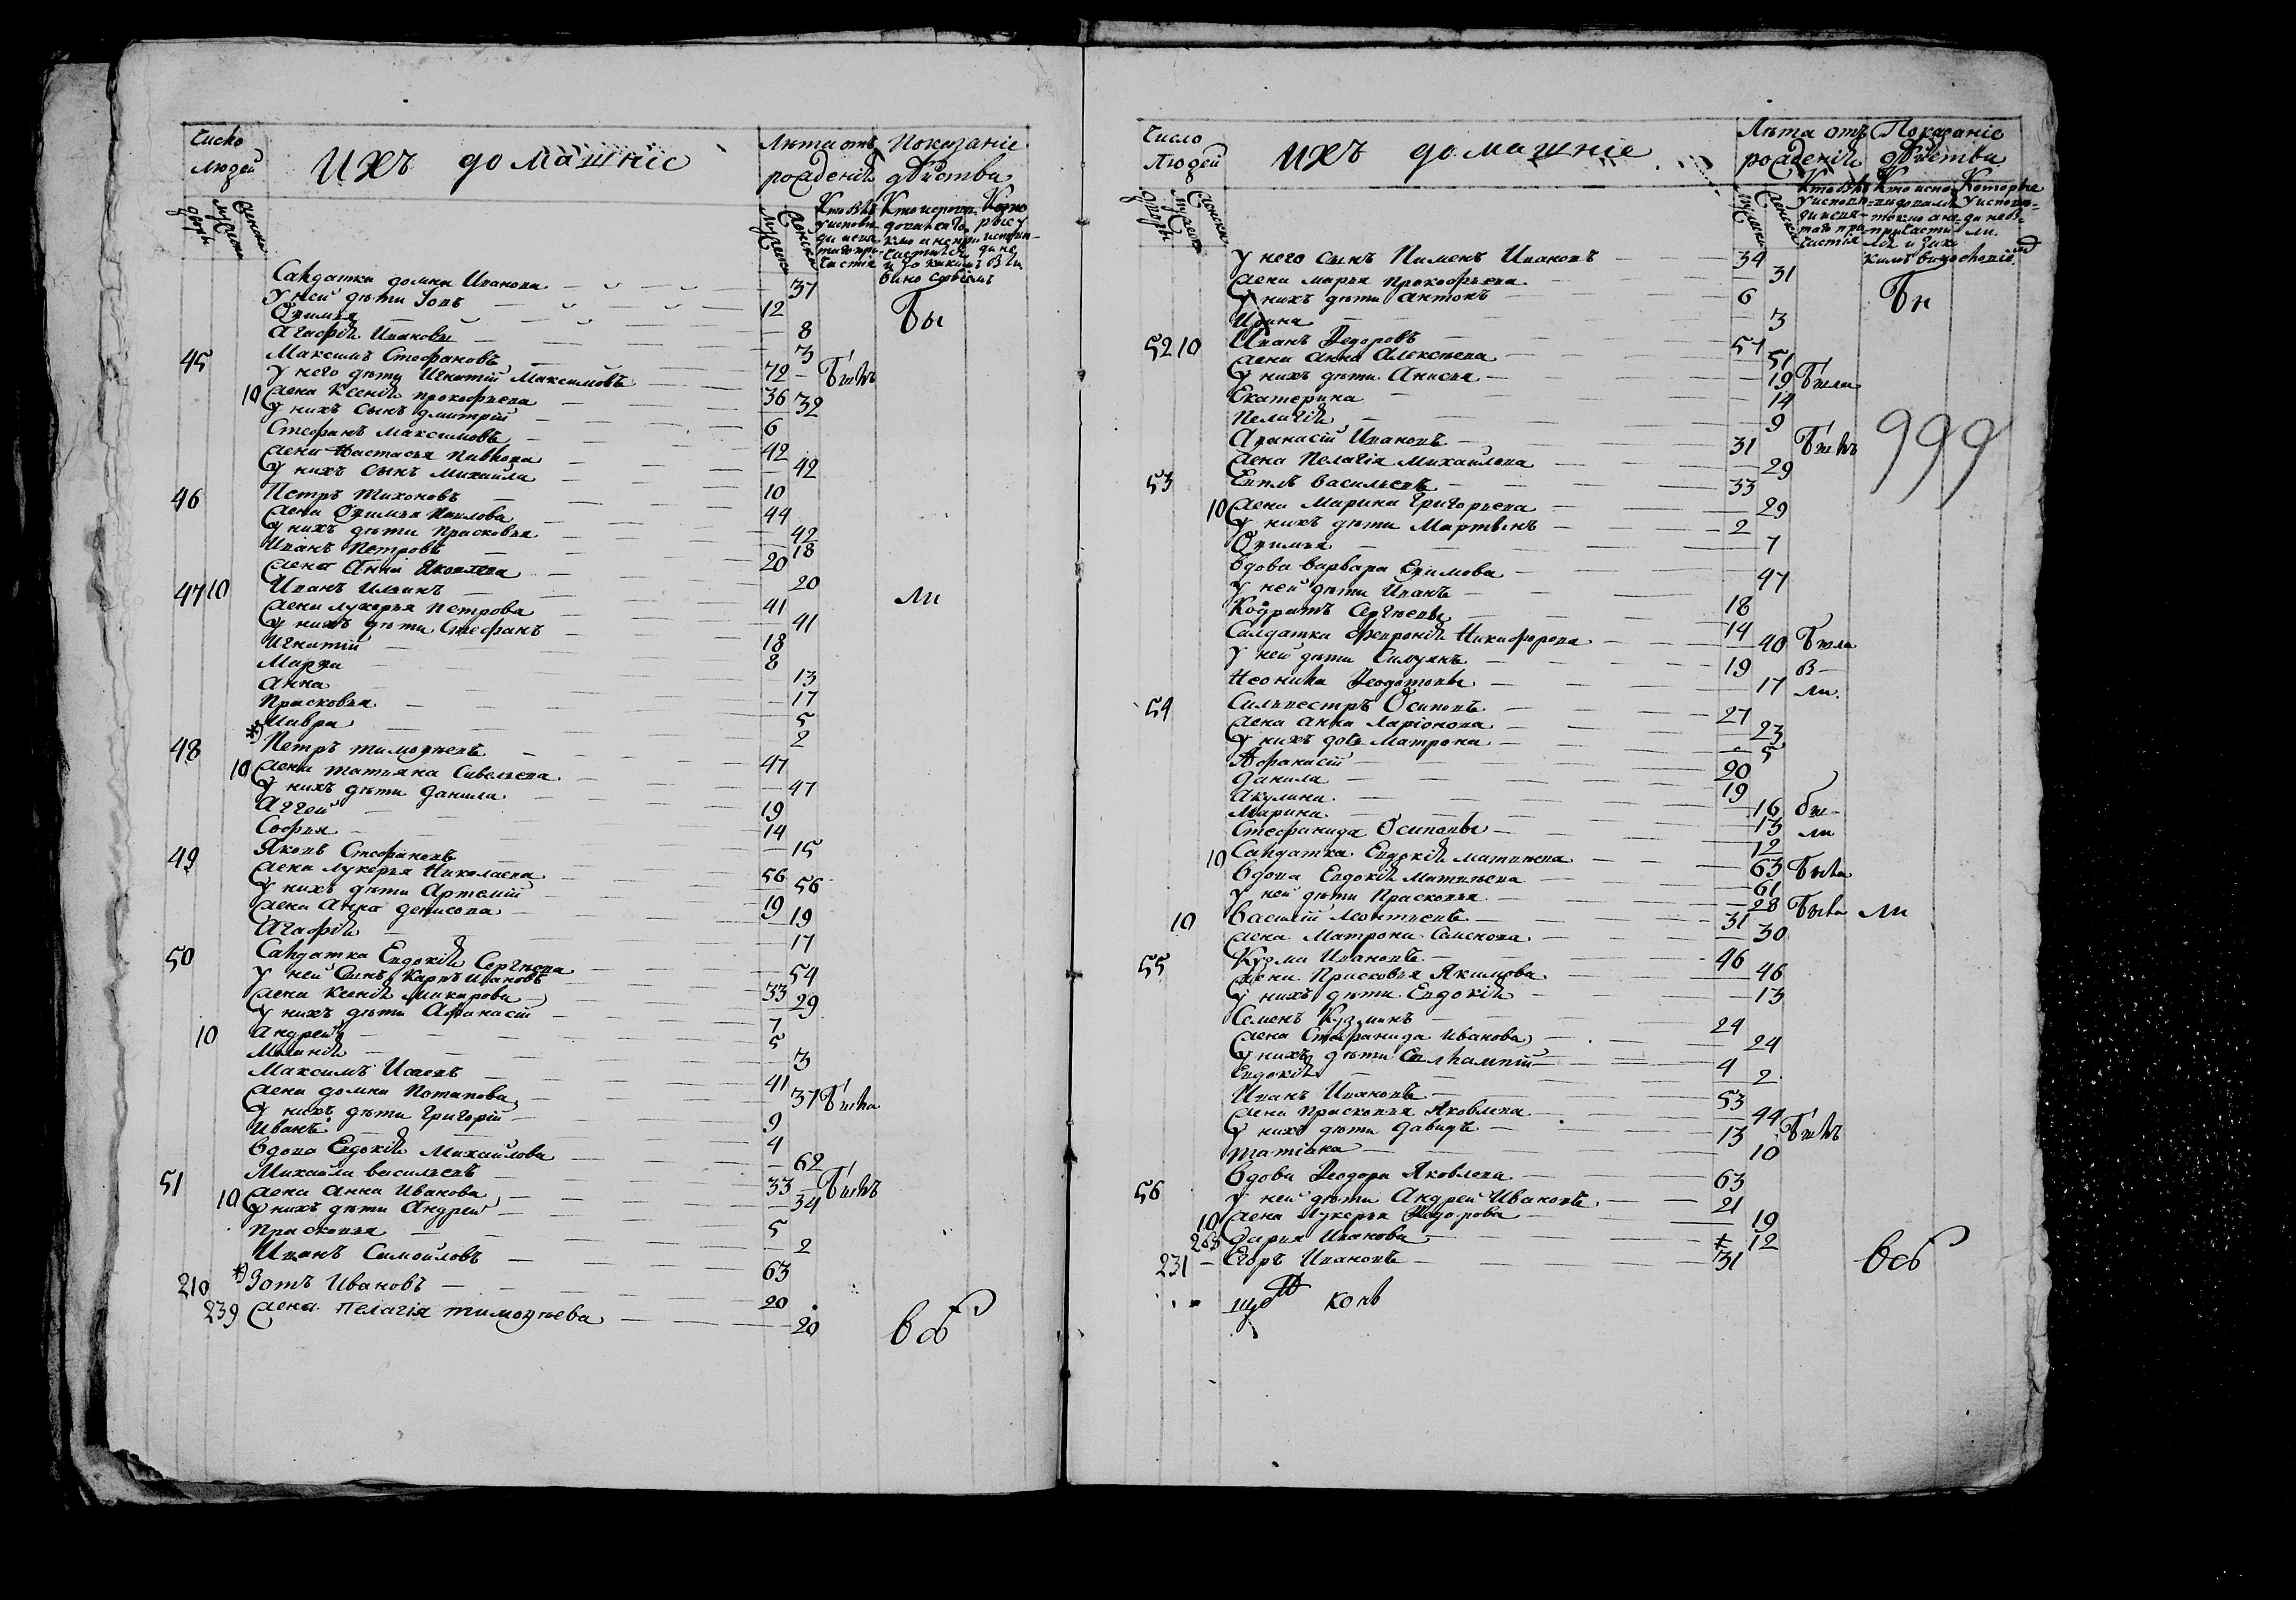 Число Людей
ихъ домашніе
Лѣта отъ рожденія
Показаніе дѣйства
Салдатка домна Иванова 37
У ней дѣти Іовъ 12
Ѳимья 8 Бы
Агафія Ивановы 3
45 Максимъ Стефановъ 72 Былъ
У него дѣти Игнатій Максимовъ 36
10 жена Ксенія прокофьева 32
У нихъ сынъ дмитрій 6
Стефанъ максимовъ 42
жена Настасья Павлова 42
У нихъ сынъ михаила 10
46 Петръ тихоновъ 44
жена Павлова 42
У нихъ дѣти прасковья 18
Иванъ Петровъ 20
жена Анна Яковлева 20
47 10 Иванъ 41 ли
жена лукерья Петрова 41
У нихъ дѣти Стефанъ 18
Игнатій 8
Марѳа 13
Анна 17
прасковья 5
Мавра 2
48 *) Петръ тимоѳеевъ 47
10 жена татьяна Савельева 47
У нихъ дѣти данила 19
Аггей 14
Софья 15
49 Яковъ Стефановъ 56
жена лукерья Николаева 56
У нихъ дѣти Артемій 19
жена Анна денисова 19
Агафія 17
50 Салдатка Евдокія Сергѣева 54
У ней Сынъ Карпъ Ивановъ 33
жена Ксенія макарова 29
У нихъ дѣти Афанасій 7
10 андрей 5
Маланія 3
Максимъ Исаевъ 41
жена домна Потапова 37 Была
У нихъ дѣти григорій 9
Иванъ 4
Вдова Евдокія Михаилова 62
51 Михаила васильевъ 33 Былъ
10 жена анна Иванова 34
У нихъ дѣти Андрей 5
прасковья 2
Иванъ Самойловъ 63
210 *) Зотъ Ивановъ 20
239 жена пелагія тимоѳеева 20
Число Людей
ихъ домашніе
Лѣта отъ рожденія
Показаніе дѣйства
У него сынъ Пименъ Ивановъ 34
жена марья прокофьева 31
У нихъ дѣти антонъ 6
Ирина 3
52 10 Иванъ Ѳедоровъ 51
жена анна Алексѣева 51
У нихъ дѣти Анисья 19 Были
Екатерина 14
Пелагія 9
Афанасій Ивановъ 31 Былъ
жена пелагія михаилова 29
999
53 Евплъ васильевъ 33
10 жена Марина григорьева 29
У нихъ дѣти Мартынъ 2
Ѳимья 7
Вдова варвара Ефимова 47
У ней дѣти Иванъ 18
Кодратъ Сергѣевы 14
Салдатка Февронія Никифорова 40 Была
У ней дѣти 19
Неонила Ѳедотовы 17 ли
54 Силвестръ Осиповъ 27
жена анна ларіонова 23
У нихъ дочь матрона 5
Афанасій 20
данила 19
Акулина 16
Марина 13 ли
Стефанида Осиповы 12
10 Салдатка Евдокія матвѣева 63 Была
Вдова Евдокія Матвѣева 61
У ней дѣти Прасковья 28 Была ли
10 Василій леонтьевъ 31
жена Матрона Семенова 30
55 Кузма Ивановъ 46
жена Прасковья Якимова 46
У нихъ дѣти Евдокія 13
Семенъ Кузминъ 24
жена Стефанида Иванова 24
У нихъ дѣти Евлампій 4
Евдокія 2
Иванъ Ивановъ 53
жена прасковья Яковлева 44
У нихъ дѣти давидъ 13 Былъ
татіана 10
Вдова Ѳеодора Яковлева 63
56 У ней дѣти Андрей Ивановъ 21
10 жена Лукерья Ѳедорова 19
263 Дарья Иванова 12
231 Егоръ Ивановъ 31